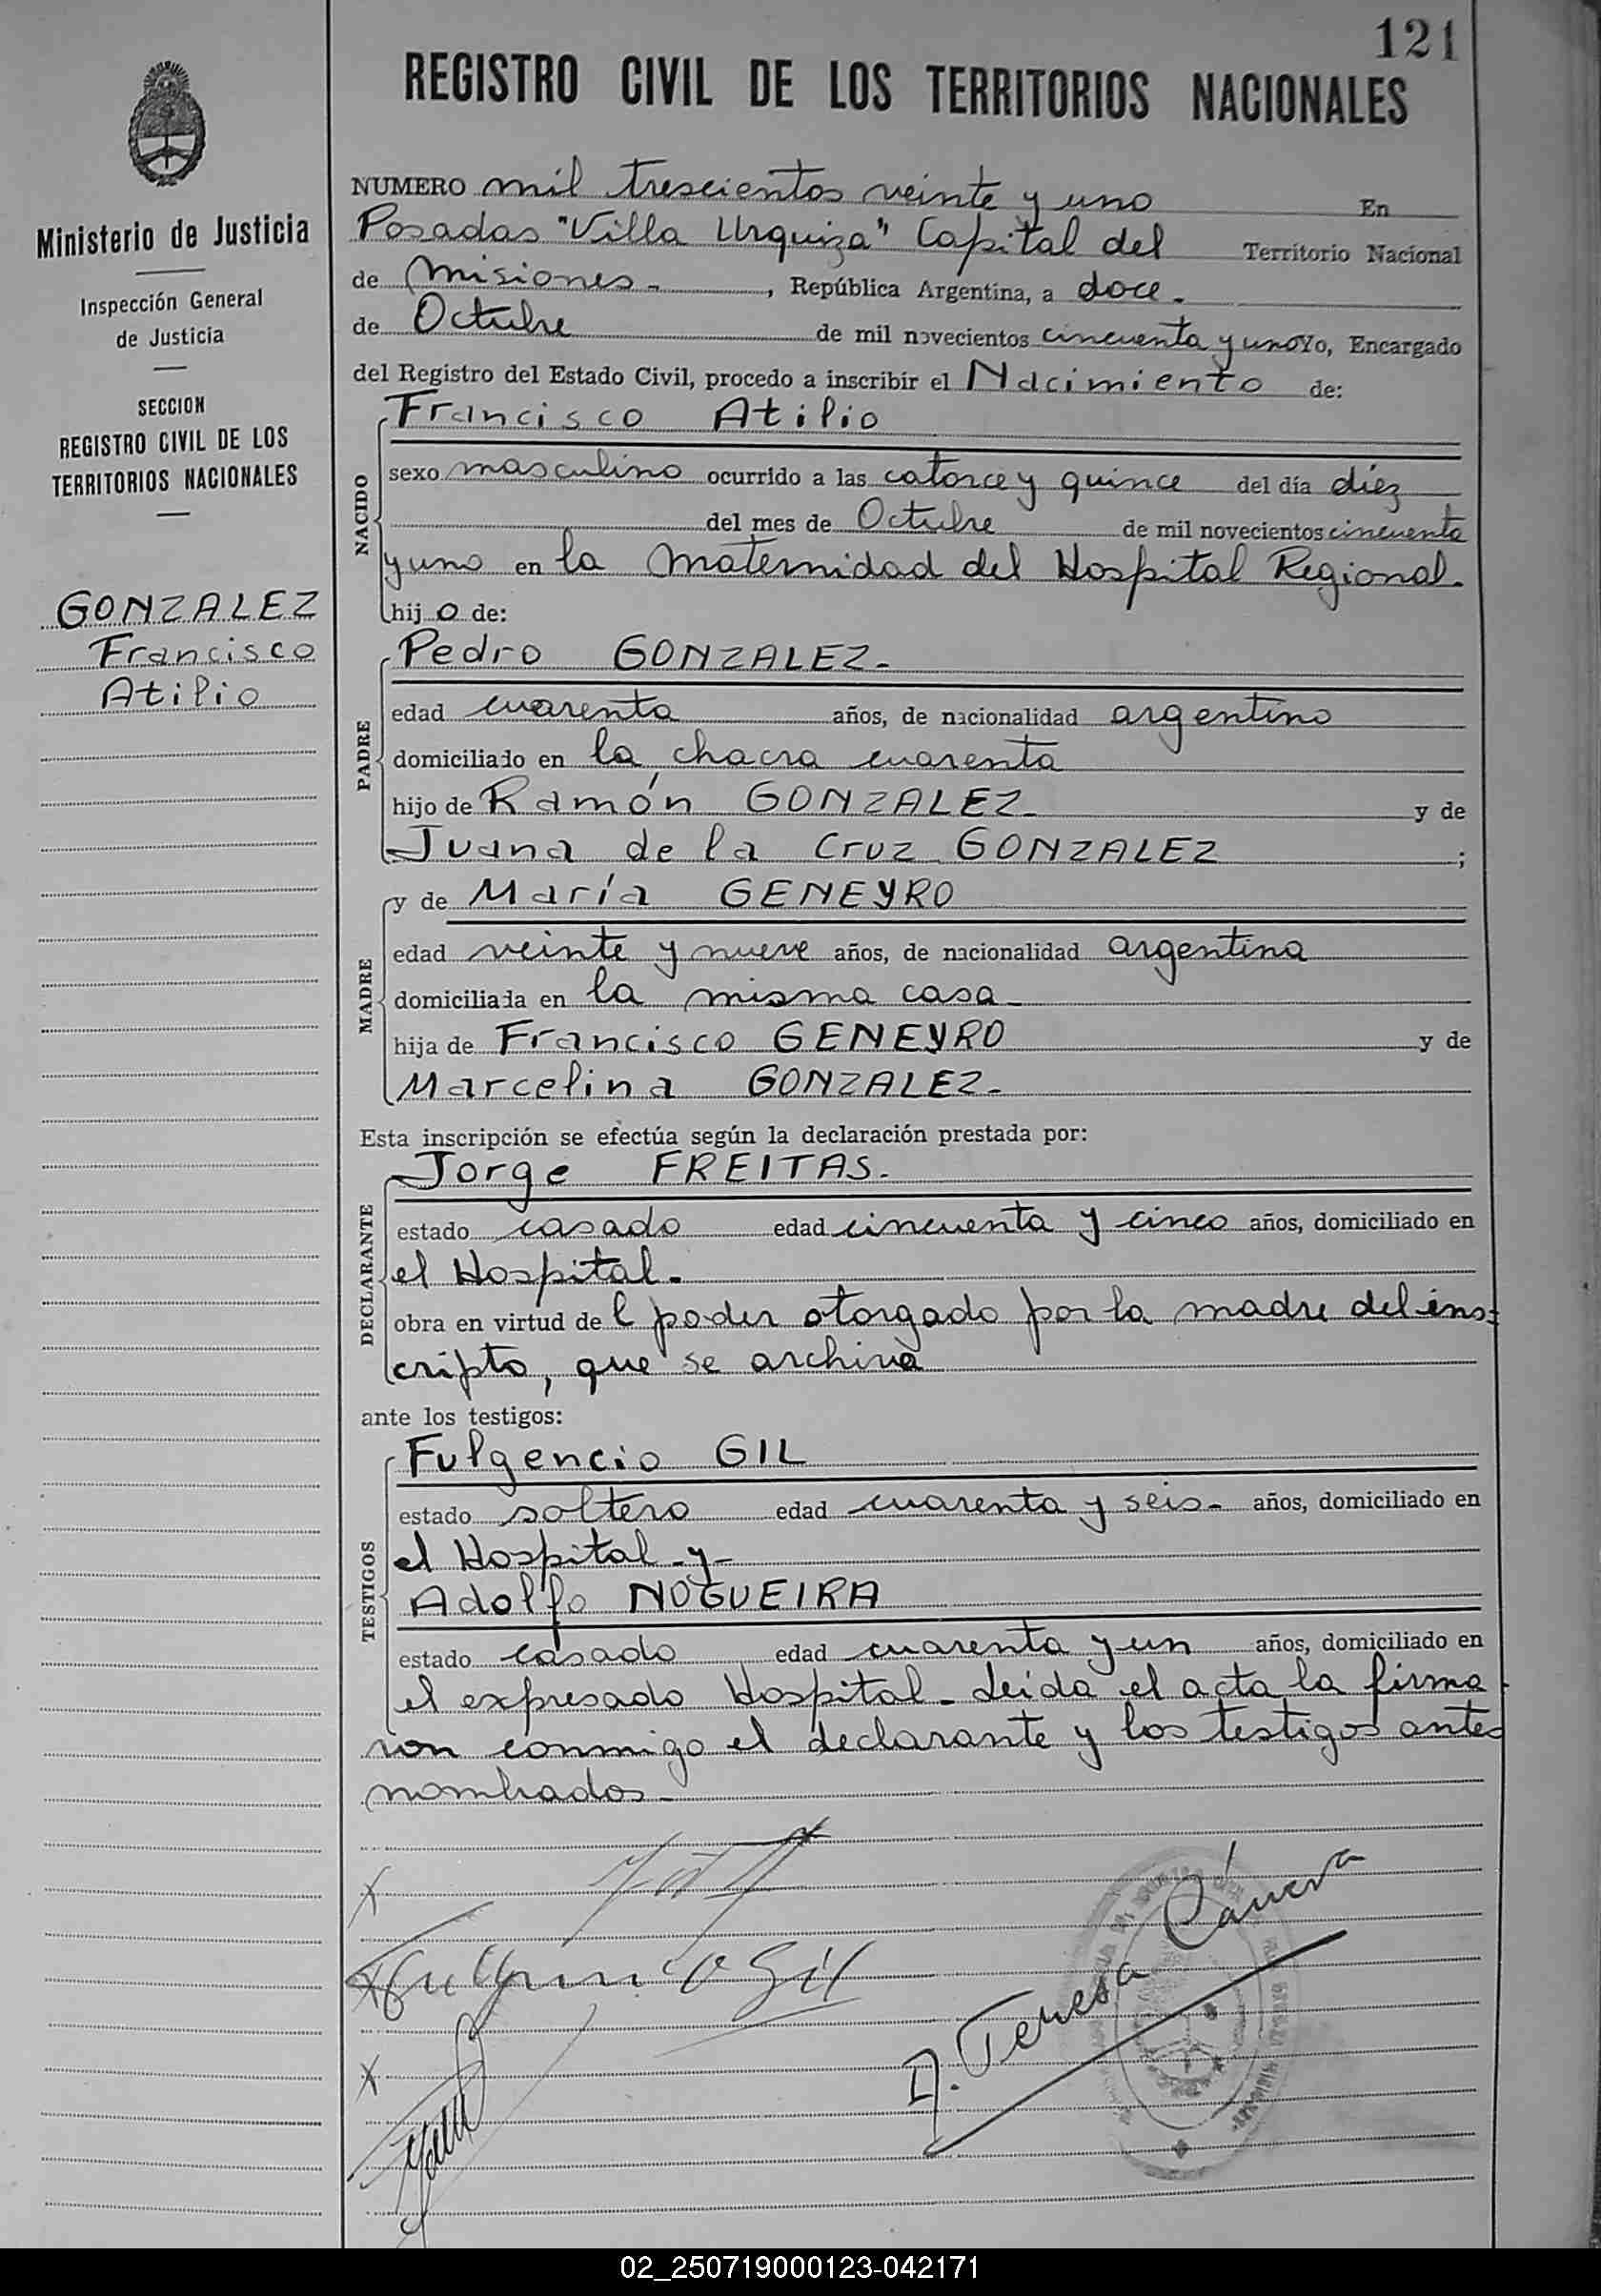 121
REGISTRO CIVIL DE LOS TERRITORIOS NACIONALES
Ministerio de Justicia
Inspección General
de Justicia
SECCION
REGISTRO CIVIL DE LOS
TERRITORIOS NACIONALES
GONZALEZ
Francisco
Atilio
NUMERO mil trescientos veinte y uno En
Posadas "Villa Urquiza" Capital del Territorio Nacional
de Misiones.-, República Argentina, a doce.-
de Octubre de mil novecientos cincuenta y uno Yo, Encargado
del Registro del Estado Civil, procedo a inscribir el Nacimiento de:
NACIDO
Francisco Atilio
sexo masculino ocurrido a las catorce y quince del día diez
del mes de Octubre de mil novecientos cincuenta
y uno en la Maternidad del Hospital Regional.
hijo de:
PADRE
Pedro GONZALEZ.-
edad cuarenta años, de nacionalidad argentino
domiciliado en la chacra cuarenta
hijo de Ramón GONZALEZ.- y de
Juana de la Cruz GONZALEZ ;
MADRE
y de María GENEYRO
edad veinte y nueve años, de nacionalidad argentina
domiciliada en la misma casa.-
hija de Francisco GENEYRO y de
Marcelina GONZALEZ.-
Esta inscripción se efectúa según la declaración prestada por:
DECLARANTE
Jorge FREITAS.-
estado casado edad cincuenta y cinco años, domiciliado en
el Hospital.-
obra en virtud del poder otorgado por la madre del ins-
cripto, que se archiva
ante los testigos:
TESTIGOS
Fulgencio GIL
estado soltero edad cuarenta y seis.- años, domiciliado en
el Hospital -y-
Adolfo NOGUEIRA
estado casado edad cuarenta y un años, domiciliado en
el expresado Hospital.- Leida el acta la firma
ron conmigo el declarante y los testigos antes
nombrados.-
x
x Fulgencio Gil
x
A. Teresa
02_250719000123-042171